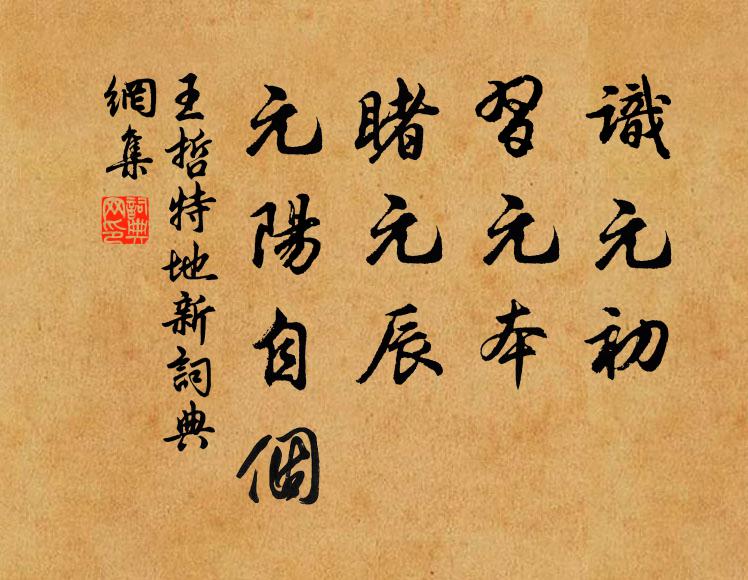 識元初
習元本
睹元辰
元陽自個
王哲特地新詞典
網集
詞典
网印